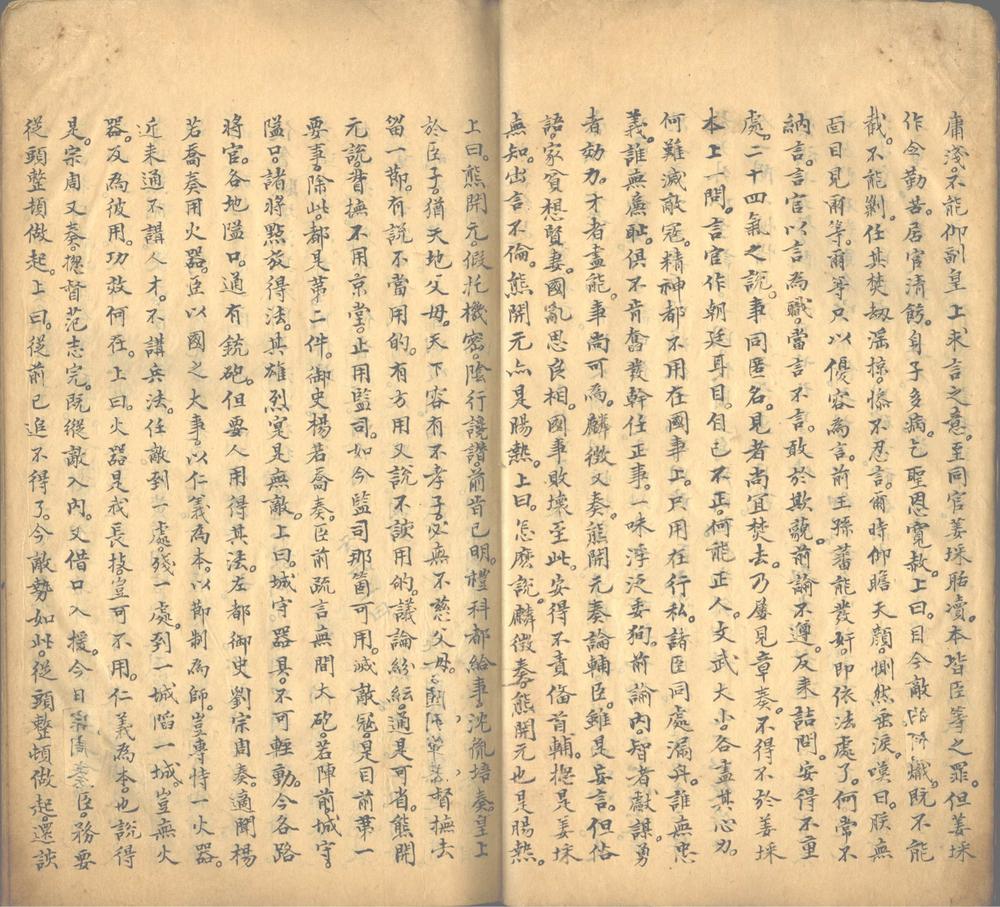 庸淺。不能仰副皇上求言之意。至同官姜埰昏瀆。本皆臣等之罪。但姜埰
作令勤苦。居官清餙。身子多病。乞聖恩寬赦。上曰。目今敵熾。既不能
截。不能剿。任其焚劫滛掠。慘不忍言。爾時仰瞻天顔。惻然垂淚。嘆曰。朕無
面目見爾等。爾等只以優容為言。前王孫蕃能發奸。即依法處了。何常不
納言。言官以言為職。當言不言。敢於欺藐。前諭不遵。反来詰問。安得不重
處。二十四氣之說。事同匿名。見者尚宜焚去。乃屡見章奏。不得不於姜埰
本上一問。言官作朝廷耳目。自己不正。何能正人。文武大小。各盡其心力。
何難滅敵寇。精神都不用在國事上。只用在行私。諸臣同處漏舟。誰無忠
義。誰無廉耻。俱不肯奮發幹任正事。一味浮泛委狥。前諭內。智者獻謀。勇
者効力。才者盡能。事尚可為。麟徵又奏。熊開元奏論輔臣。雖是妄言。但估
語。家貧想賢妻。國亂思良相。國事敗壞至此。安得不責俻首輔。揔是姜埰
無知。出言不倫。熊開元亦是腸熱。上曰。怎麽說。麟徵奏。熊開元也是腸熱。
上曰。熊開元。假托機密。隂行讒譖。前旨已明。禮科都給事。沈胤培奏。皇上
於臣子。猶天地父母。天下容有不孝子。必無不慈父母。督撫去
留一節。有說不當用的。有方用又說不該用的。議論紛紜。通是可省。熊開
元說。督撫不用京堂。止用監司。如今監司那箇可用。滅敵寇。是目前第一
要事。除此。都是第二件。御史楊若喬奏。臣前疏言無間大砲。若陣前城守。
隘口。諸將點放得法。其雄烈寔是無敵。上曰。城守器具。不可輕動。今各路
將官。各地隘口。通有銃砲。但要人用得其法。左都御史劉宗周奏。適聞楊
若喬奏用火器。臣以國之大事。以仁義為本。以節制為師。豈專恃一火器。
近来通不講人才。不講兵法。任敵到一處。殘一處。到一城。陷一城。豈無火
器。反為彼用。功效何在。上曰。火器是戎長技。豈可不用。仁義為本。也說得
是。宗周又奏。揔督范志完。既縱敵入內。又借口入援。今日宗周奏。臣。務要
從頭整頓做起。上曰。從前已追不得了。今敵勢如此。從頭整頓做起。還該